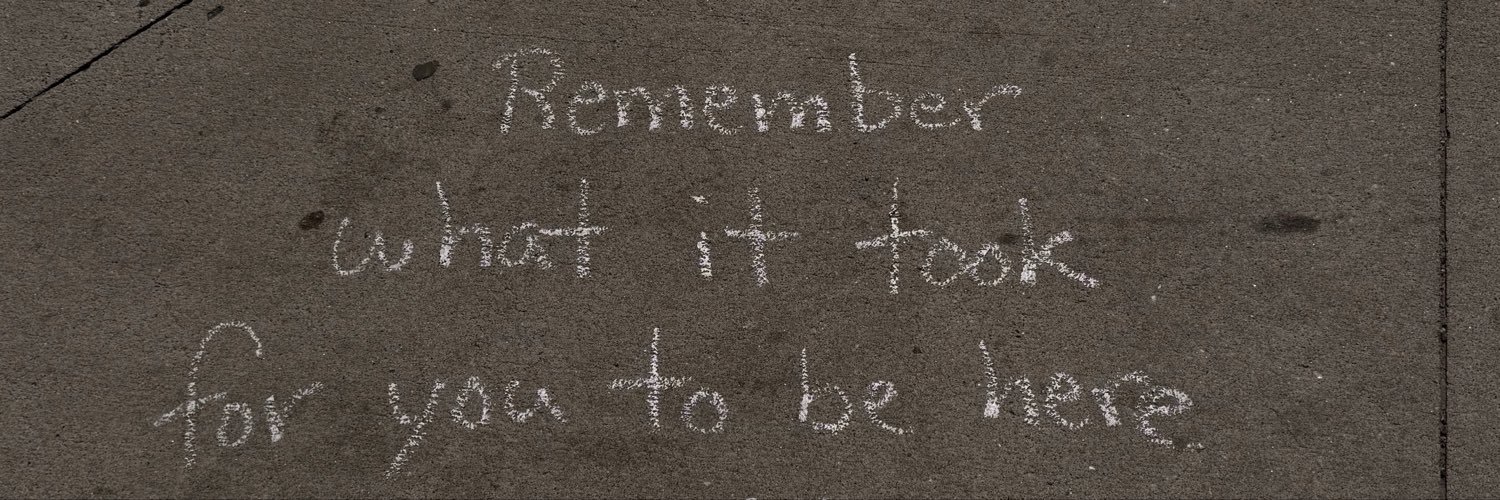 Remember
what it took
for you to be here